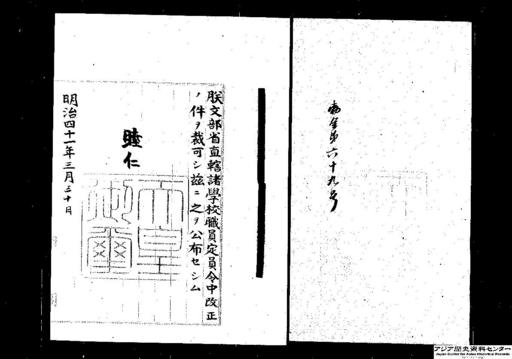 勅令第六十九号
朕文部省直轄諸學校職員定員令中改正
ノ件ヲ裁可シ茲ニ之ヲ公布セシム
睦仁
天皇御璽
明治四十一年三月三十日
アジア歴史資料センター
Japan Center for Asian Historical Records